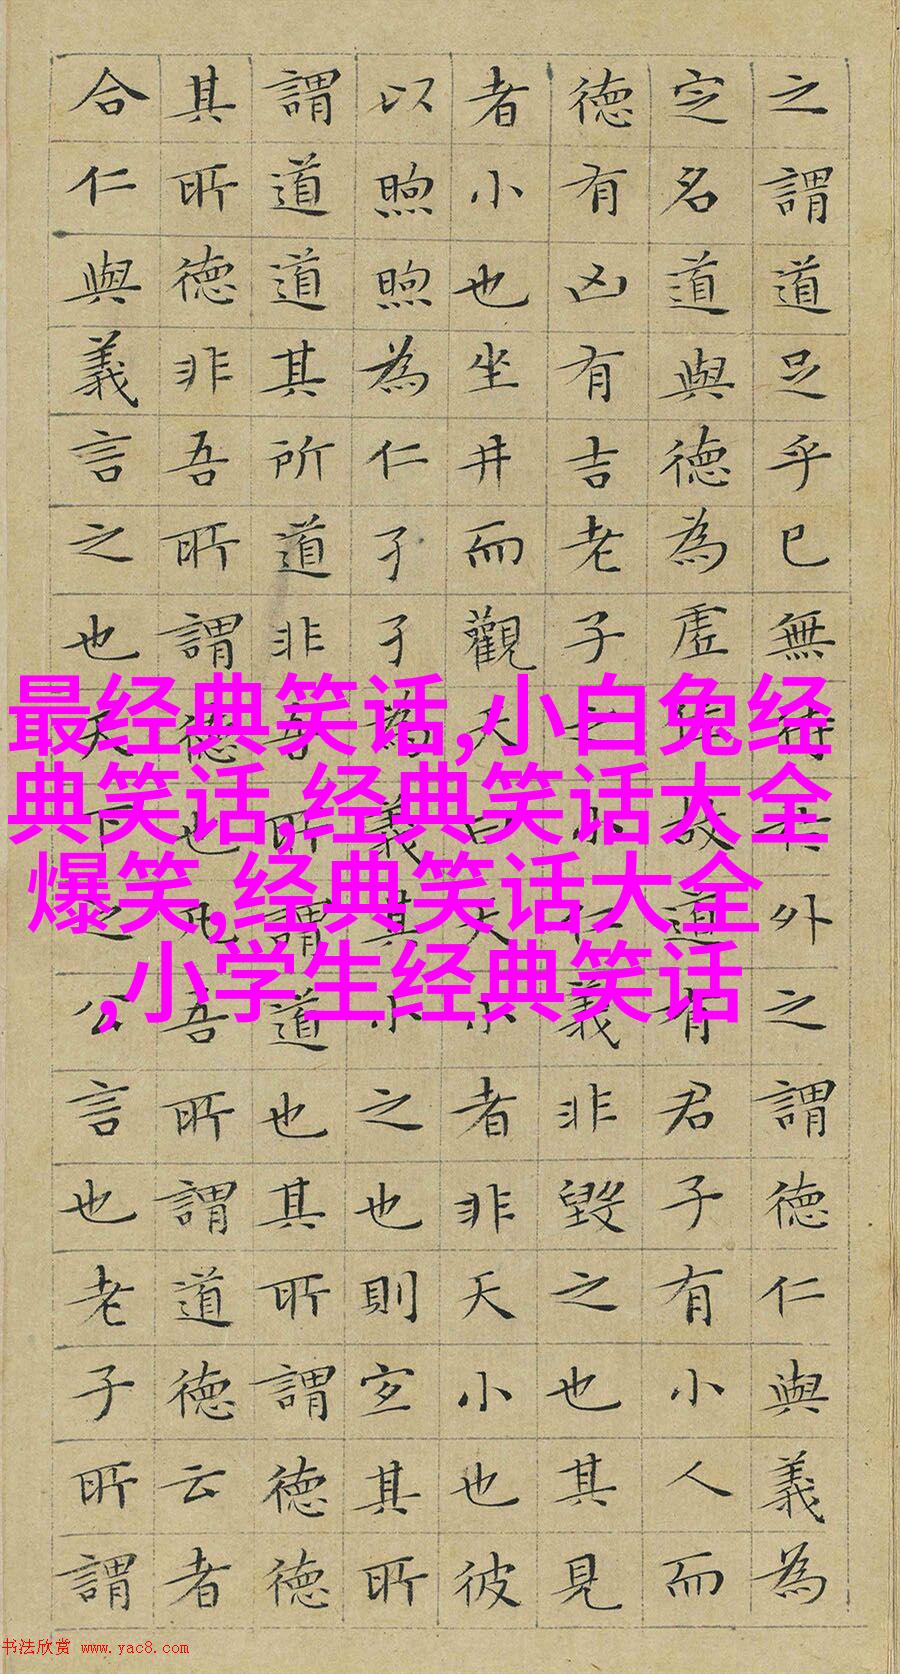 之謂道足乎已無待於外之謂德仁與義為
定名道與德為虛位故道有君子有小人而
德有凶有吉老子之小仁義非毀之也其見
者小也坐井而觀天曰天小者非天小也彼
以煦煦為仁孑孑為義其小之也則宜其所
謂道道其所道非吾所謂道也其所謂德德
其所德非吾所謂德也凡吾所謂道德云者
合仁與義言之也天下之公言也老子所謂
最经典笑话,小白兔经
典笑话,经典笑话大全
爆笑,经典笑话大全
,小学生经典笑话
书法欣赏 www.yac8.com